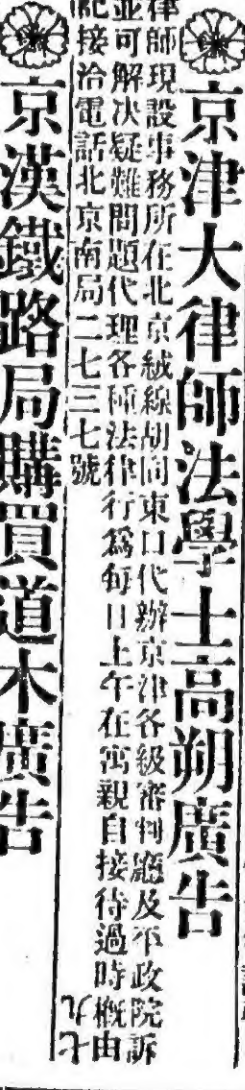 京津大律師法學士高朔廣告
律師現設事務所在北京絨線胡同東口代辦京津各級審判廳及平政院訴
並可解決疑難問題代理各種法律行爲每日上午在寓親自接待過時概由
記接洽電話北京南局二七三七號
七九
京漢鐵路局購買道木廣告